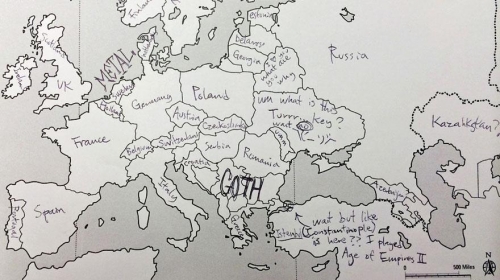 Estonia
Russia
METAL
Belarus
Georgia
UK
Poland
Germany
um what is this
Turrrrkey?
wait
Kazakhstan?
Austria
France
Czechoslov
Switzerland
Belgium
Serbia
Romania
Croatia
Italy
GOTH
Azerbaijan
Portugal
Spain
Greece
wait but like
Istanbul (Constantinople)
is here?? I played
Age of Empires II
500 Miles
N